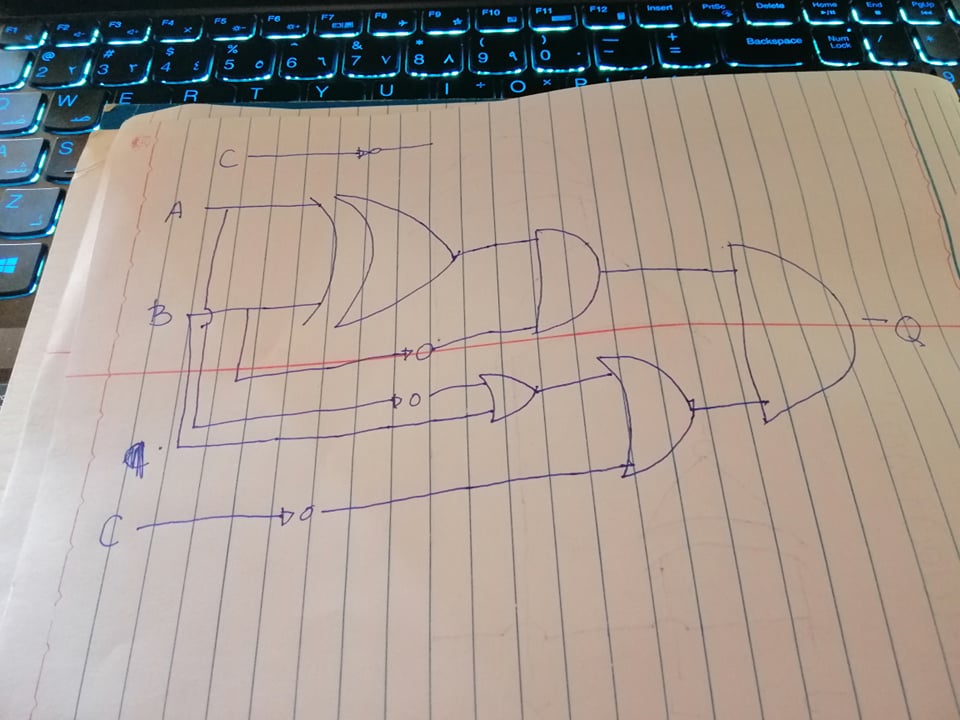 F1 F2 F3 F4 F5 F6 F7 F8 F9 F10 F11 F12 Insert PrtSc Delete Home End PgUp
@ 2 ٢ # 3 ٣ $ 4 ٤ % 5 ٥ ^ 6 ٦ & 7 ٧ * 8 ٨ ( 9 ٩ ) 0 - + = Backspace Num Lock / *
Q W E R T Y U I O P
A S
Z
C
A
B
Q
C